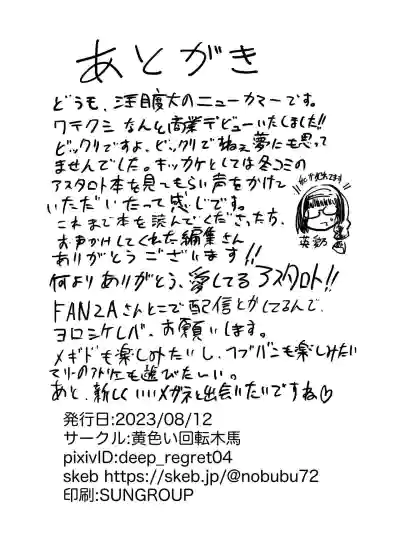 あとがき
どうも、注目度大のニューカマーです。
ワテクシ なんと商業デビューいたしました!!
ビックリですよ、ビックリでねぇ夢にも思って
ませんでした。キッカケとしては冬コミの
アスタロト本を見てもらい声をかけて
いただいたって感じです。
これまで本を読んでくださった方、
お声かけしてくれた編集さん
ありがとうございます!!
英彰
何よりありがとう、愛してるアスタロト!!
FANZAさんとこで配信とかしてるんで、
ヨロシケレバ、お願いします。
メギドも楽しみたいし、ブルバンも楽しみたい
マリーのアトリエも遊びたいし。
あと、新しくいいメガネと出会いたいですね♡
発行日:2023/08/12
サークル:黄色い回転木馬
pixivID:deep_regret04
skeb https://skeb.jp/@nobubu72
印刷:SUNGROUP